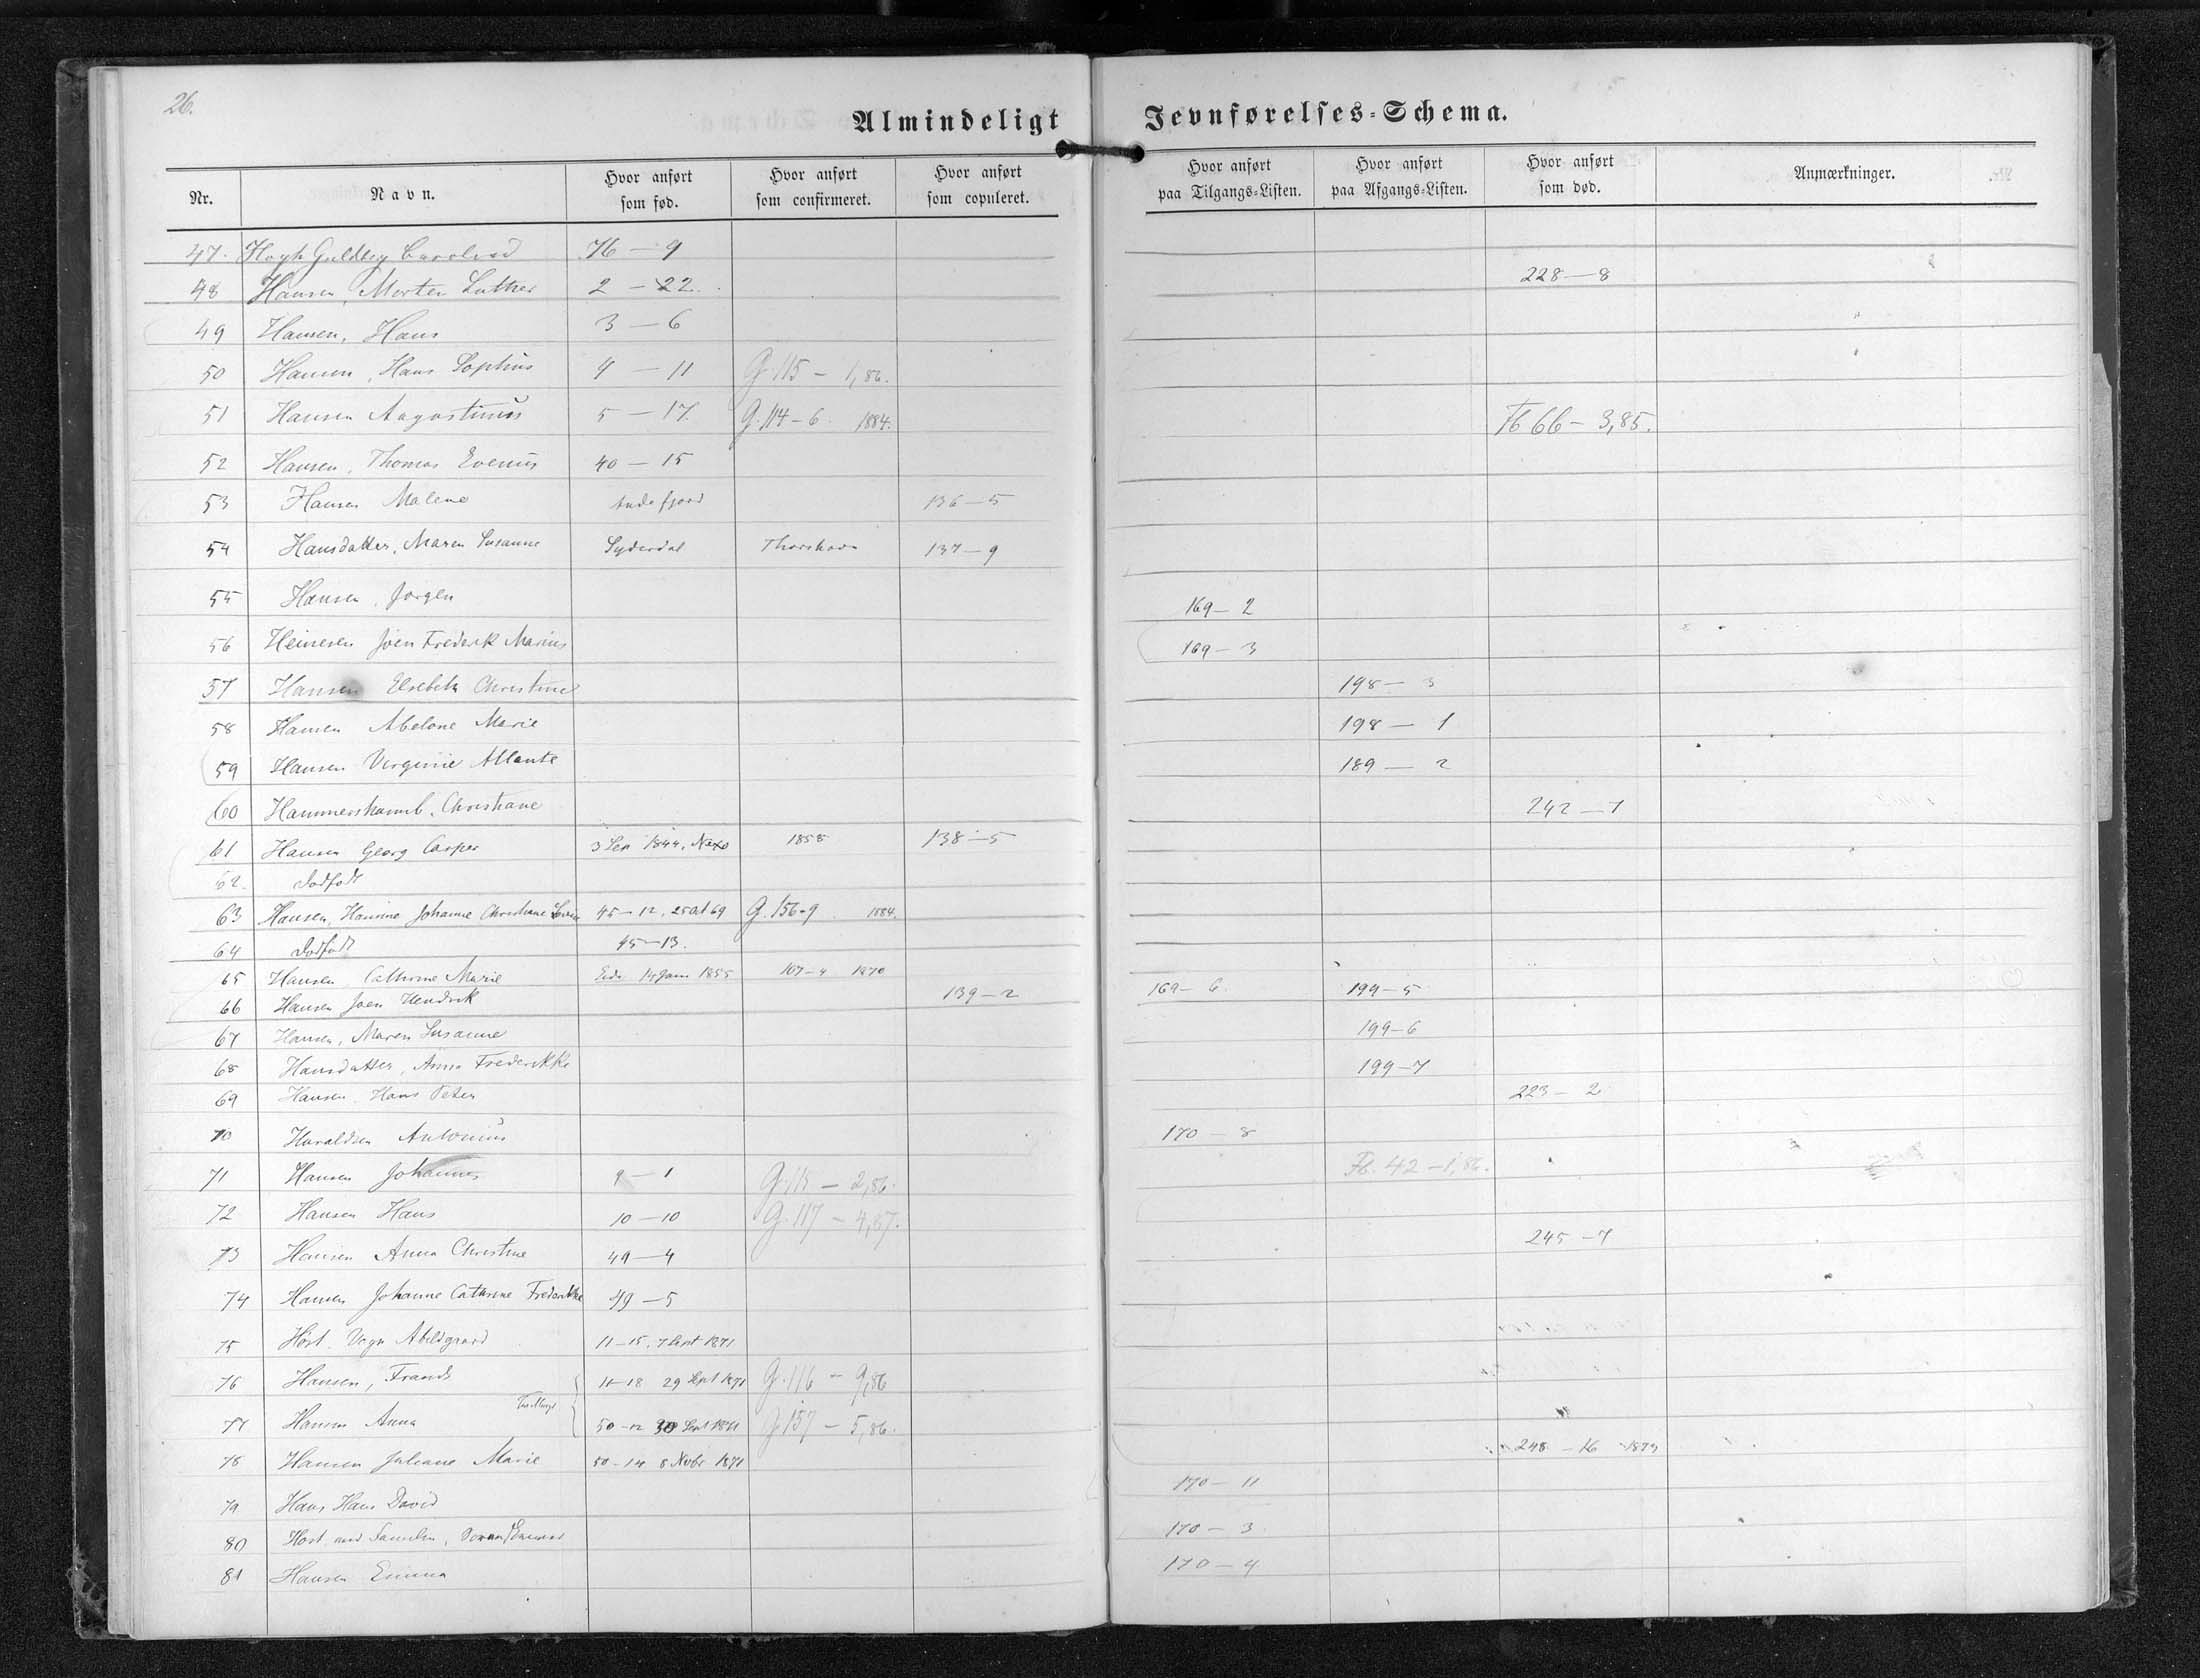 26.
Almindeligt Jevnførelses-Schema.
Nr. Navn. Hvor anført som fød. Hvor anført som confirmeret. Hvor anført som copuleret. Hvor anført paa Tilgangs-Listen. Hvor anført paa Afgangs-Listen. Hvor anført som død. Anmærkninger.
47. 76 — 9
48 Hansen, Morten Luther 2 — 22. 228 — 8
49 Hansen, Hans 3 — 6
50 Hansen, Hans Sophus 4 — 11 G. 115 — 1, 86.
51 Hansen Augustinus 5 — 17. G. 114 — 6. 1884. Fb 66 — 3, 85.
52 Hansen, Thomas Evenius 40 — 15
53 Hansen Malene Andafjord 136 — 5
54 Hansdatter, Maren Susanne Syderdal Thorshavn 137 — 9
55 Hansen, Jørgen 169 — 2
56 Heinesen Joen Frederik Marius 169 — 3
57 Hansen Elsebeth Christine 198 — 3
58 Hansen Abelone Marie 198 — 1
59 Hansen Virginie Atlante 189 — 2
60 Hammershaimb, Christiane 242 — 7
61 Hansen Georg Casper 1844, Nexø 1858 138 — 5
62. Dødfødt
63 Hansen, Hansine Johanne Christiane 45 — 12, 25 Oct 69 G. 156-9 1884.
64 Dødfødt 45 — 13.
65 Hansen Cathrine Marie Eide 14 Janr 1855 107 — 4 1870
66 Hansen Joen Hendrik 139 — 2 169 — 6. 199 — 5
67 Hansen, Maren Susanne 199 — 6
68 Hansdatter, Anna Frederikke 199 — 7
69 Hansen, Hans Peter 223 — 2
70 Haraldsen Antonius 170 — 8
71 Hansen Johannes 9 — 1 G. 115 — 2, 86. Fb. 42 — 1, 86.
72 Hansen Hans 10 — 10 G. 117 — 4, 87.
73 Hansen Anna Christine 49 — 4 245 — 7
74 Hansen Johanne Cathrine Frederikke 49 — 5
75 Høst. Vagn Abildgaard 11 — 15, 7 Sept 1871
76 Hansen, Frands 11 — 18 29 Sept 1871 G. 116 — 9, 86
Tvillinger
77 Hansen Anna 50 — 12 30 Sept 1871 G. 157 — 5, 86.
78 Hansen Juliane Marie 50 — 14 8 Novbr 1871 248 — 16 1873
79 Hans Hans David 170 — 11
80 Høst 170 — 3.
81 Hansen Emma 170 — 4